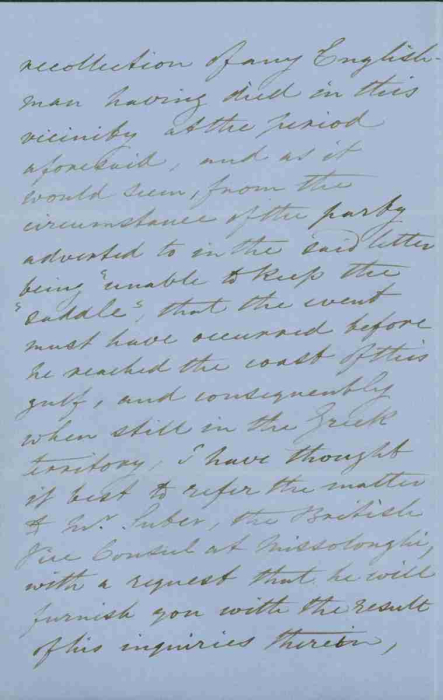 recollection of any English-
man having died in this
vicinity at the period
aforesaid, and as it
would seem, from the
circumstance of the party
adverted to in the said letter
being "unable to keep the
"saddle", that the event
must have occurred before
he reached the coast of this
gulf, and consequently
when still in the Greek
territory, I have thought
it best to refer the matter
to Mr. Suber, the British
Vice Consul at Missolonghi,
with a request that he will
furnish you with the result
of his inquiries therein,